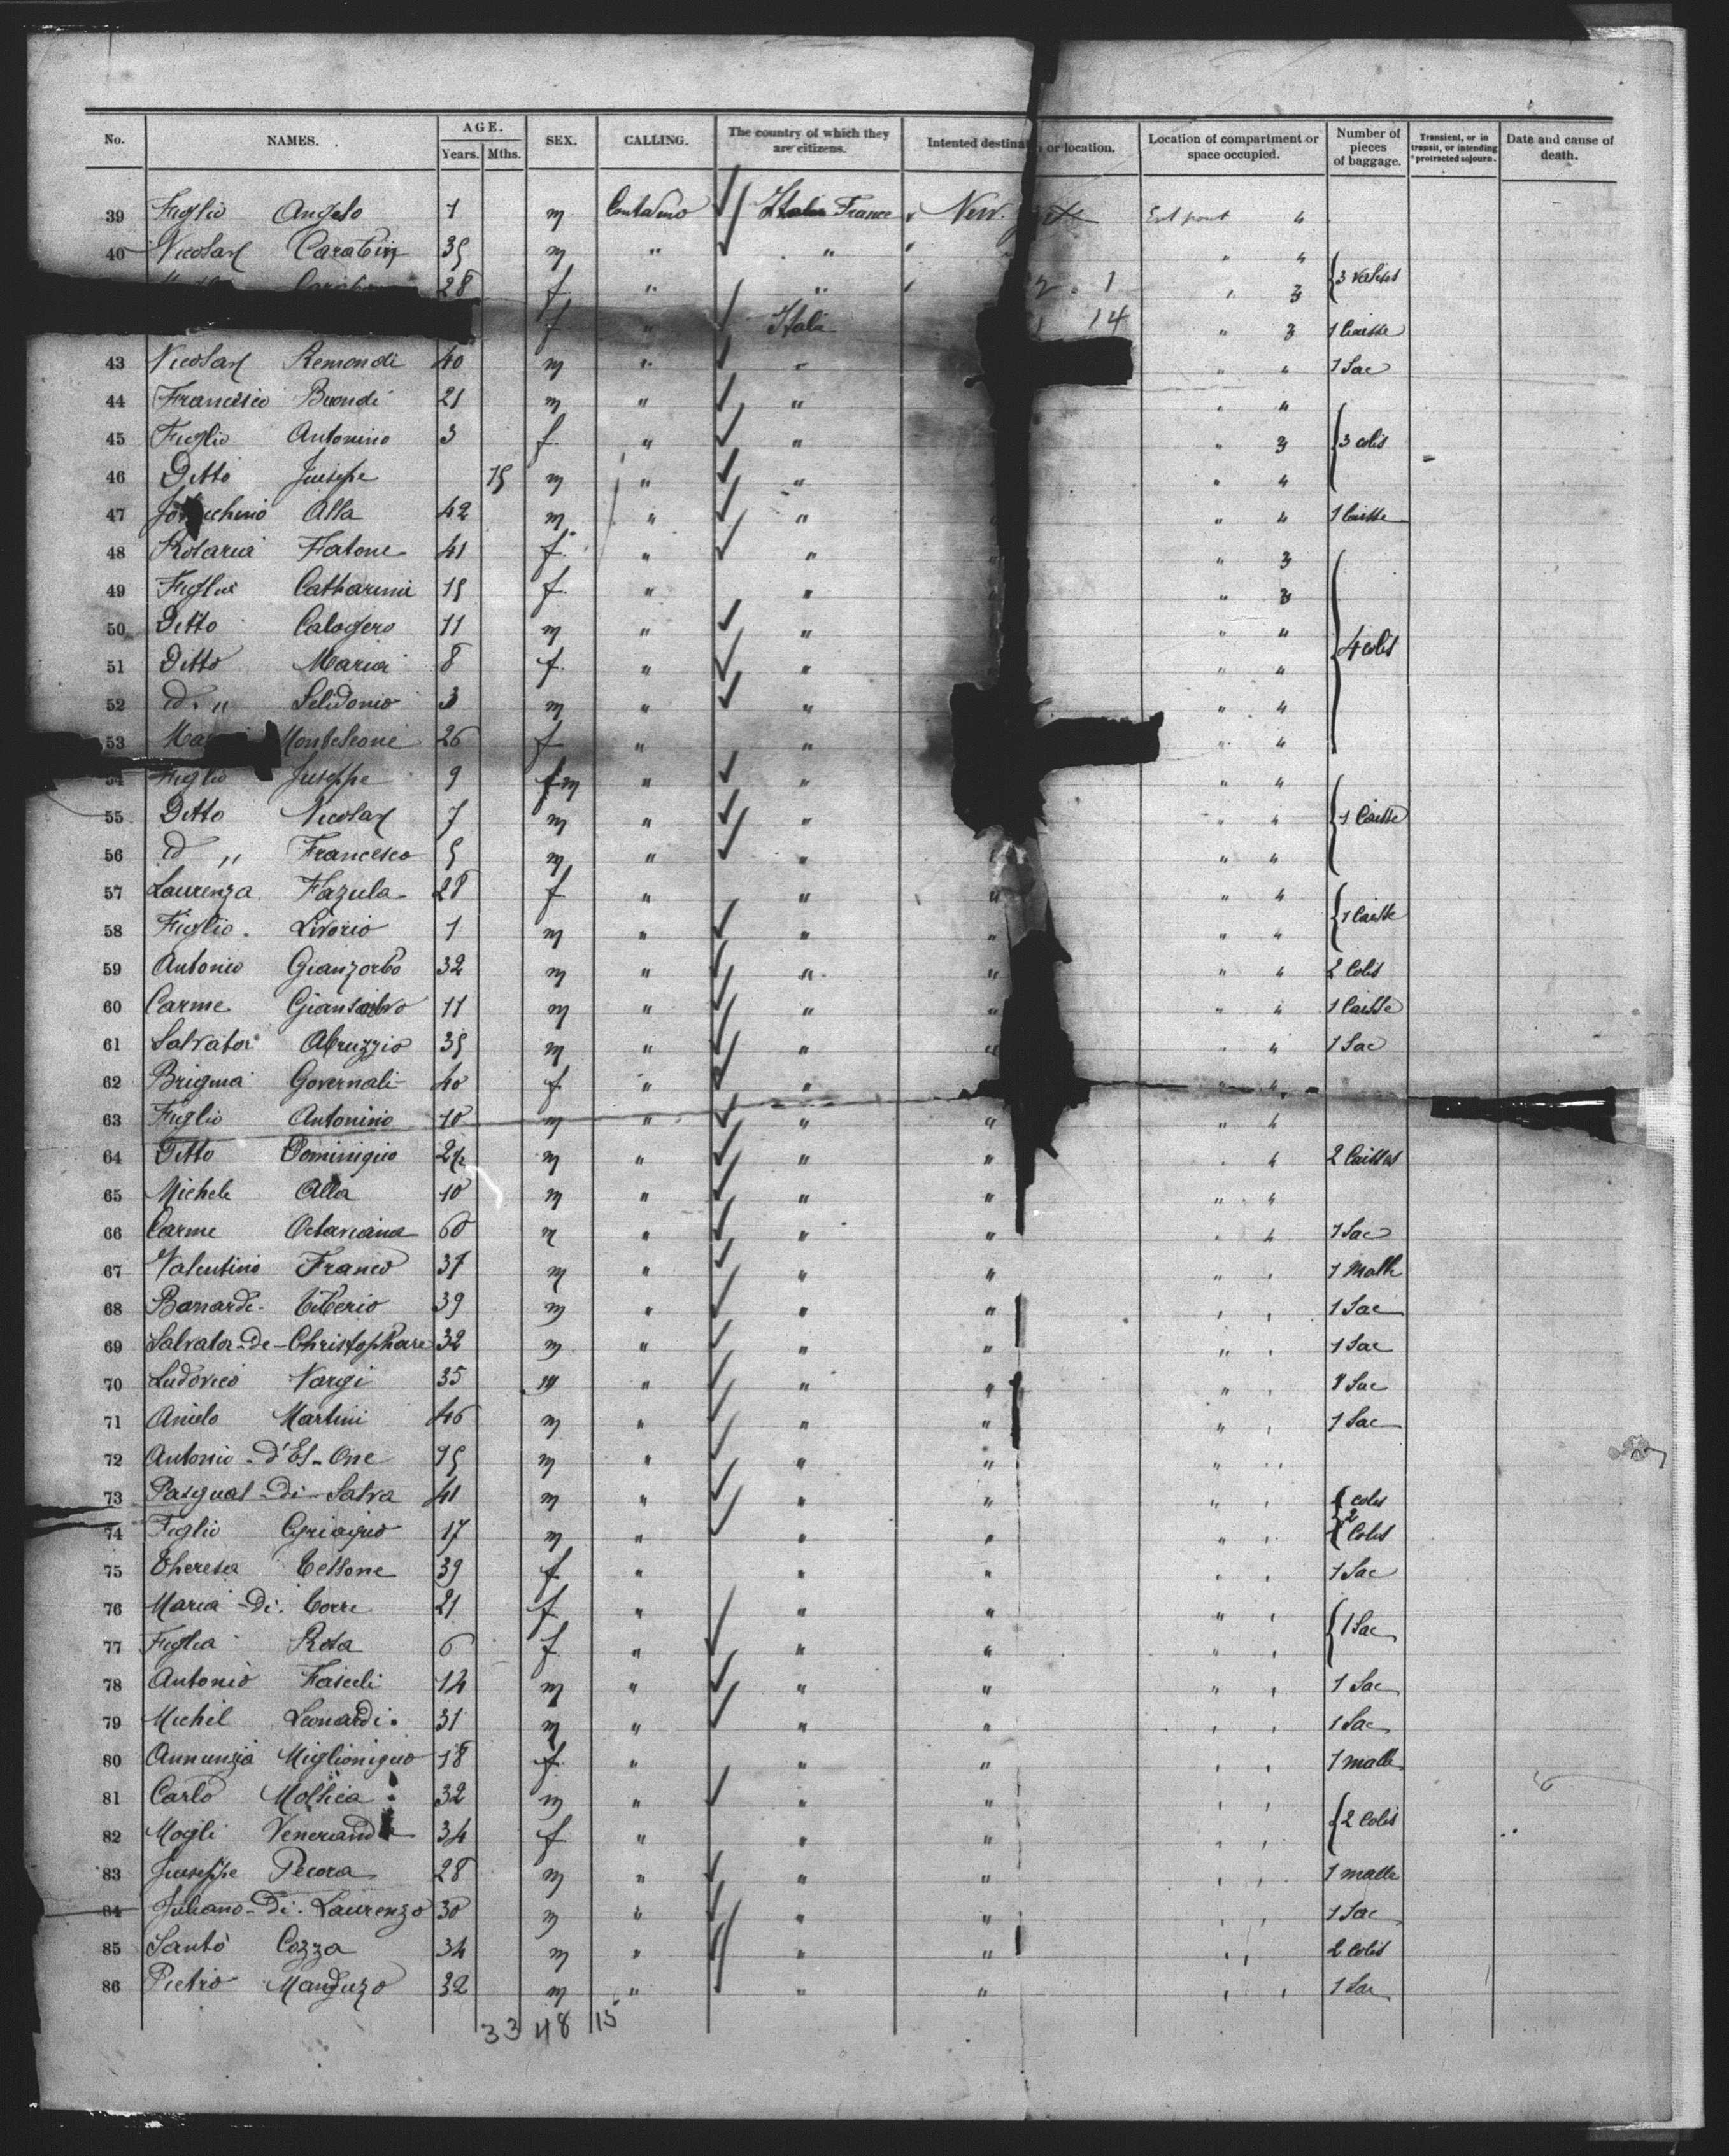 No. NAMES. AGE. Years. Mths. SEX. CALLING. The country of which they are citizens. Intented destinat or location. Location of compartment or space occupied. Number of pieces of baggage. Transient, or in transit, or intending protracted sojourn. Date and cause of death.
39 Figlio Angelo 1 m Contadino France New. Ent pont 4
40 Nicolas Carabin 35 m " " " 4
28 f " " 1 " 3 3 valises
f " Italia 14 " 3 1 Caisse
43 Nicolas Remondi 40 m " " " 4 1 Sac
44 Francesco Biondi 21 m " " " 4
45 Figlio Antonino 3 f " " " 3 3 colis
46 Ditto Juseppe 15 m " " " 4
47 Alla 42 m " " " 4 1 Caisse
48 Rosaria Fatone 41 f " " " 3
49 Figlia Catharina 15 f " " " 3
50 Ditto Calogero 11 m " " " 4
51 Ditto Maria 8 f " " " 4 4 colis
52 d. " Selidonio 3 m " " " 4
53 Monteleone 26 f " " " 4
54 Figlio Juseppe 9 m " " " 4
55 Ditto Nicolas 7 m " " " 4 1 Caisse
56 d " Francesco 5 m " " " 4
57 Laurenza Fazula 28 f " " " " 4
58 Figlio Livorio 1 m " " " " 4 1 Caisse
59 Antonio Gianzorbo 32 m " " " " 4 2 Colis
60 Carme 11 m " " " " 4 1 Caisse
61 Salvator Abruzzio 35 m " " " " 4 1 Sac
62 Governali 40 f " " " 4
63 Figlio Antonino 10 m " " " " 4
64 Ditto Dominiquo m " " " " 4 2 Caisses
65 Michele Alla 10 m " " " " 4
66 Carme Octaviana 60 m " " " " 4 1 Sac
67 Valentino Franco 37 m " " " " " 1 Malle
68 Banardi Tiberio 39 m " " " " " 1 Sac
69 Salvator-de-Christophare 32 m " " " " " 1 Sac
70 Ludovico Nargi 35 m " " " " " 1 Sac
71 Anielo Martini 46 m " " " " " 1 Sac
72 Antonio d'Es-One 15 m " " " " "
73 Pasqual-di-Salva 41 m " " " " " colis
74 Figlio 17 m " " " " " 2 Colis
75 Theresa Tessone 39 f " " " " " 1 Sac
76 Maria-di Torre 21 f " " " " "
77 Figlia Rosa 6 f " " " " " 1 Sac
78 Antonio Fascli 14 m " " " " " 1 Sac
79 Michel Leonardi 31 m " " " " " 1 Sac
80 Annunzia Miglioniquo 18 f " " " " " 1 malle
81 Carlo Mollica 32 m " " " " "
82 Mogli Veneranda 34 f " " " " " 2 Colis
83 Juseppe Pecora 28 m " " " " " 1 malle
84 Juliano-di-Laurenzo 30 m " " " " " 1 Sac
85 Santo Cozza 34 m " " " " " 2 colis
86 Pietro Manduzo 32 m " " " " " 1 Sac
33 48 15